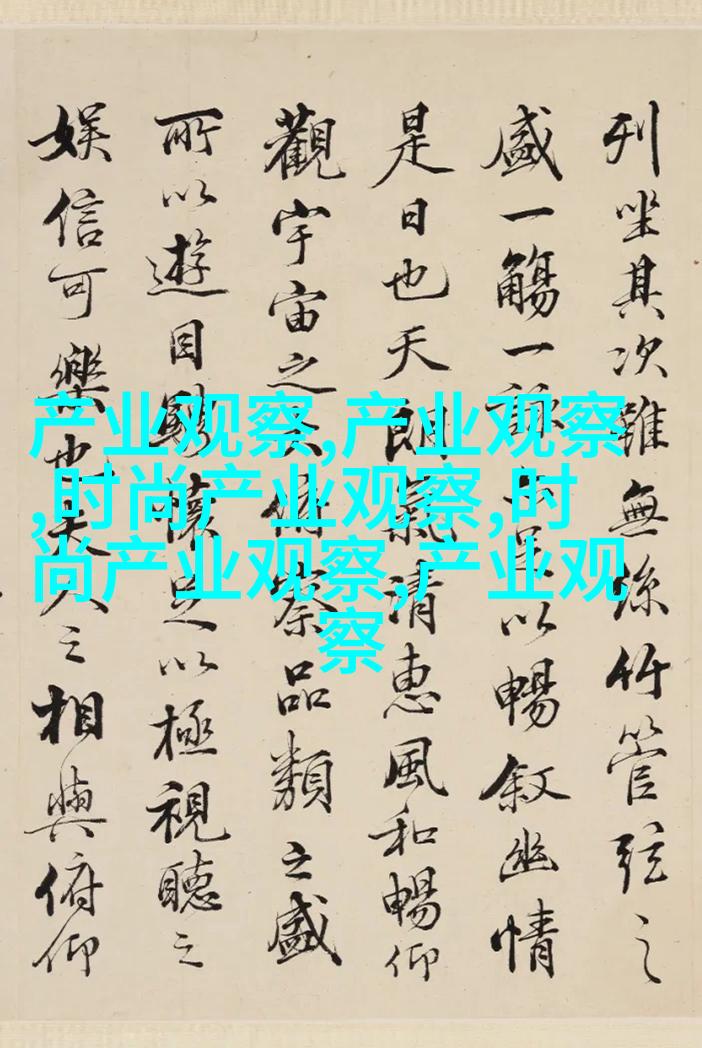 列坐其次雖無絲竹管弦之
盛一觴一詠足以暢叙幽情
是日也天朗氣清惠風和暢仰
觀宇宙之俯察品類之盛
所以遊目騁懷足以極視聽之
娱信可樂也夫人之相與俯仰
产业观察,产业观察
,时尚产业观察,时
尚产业观察,产业观
察